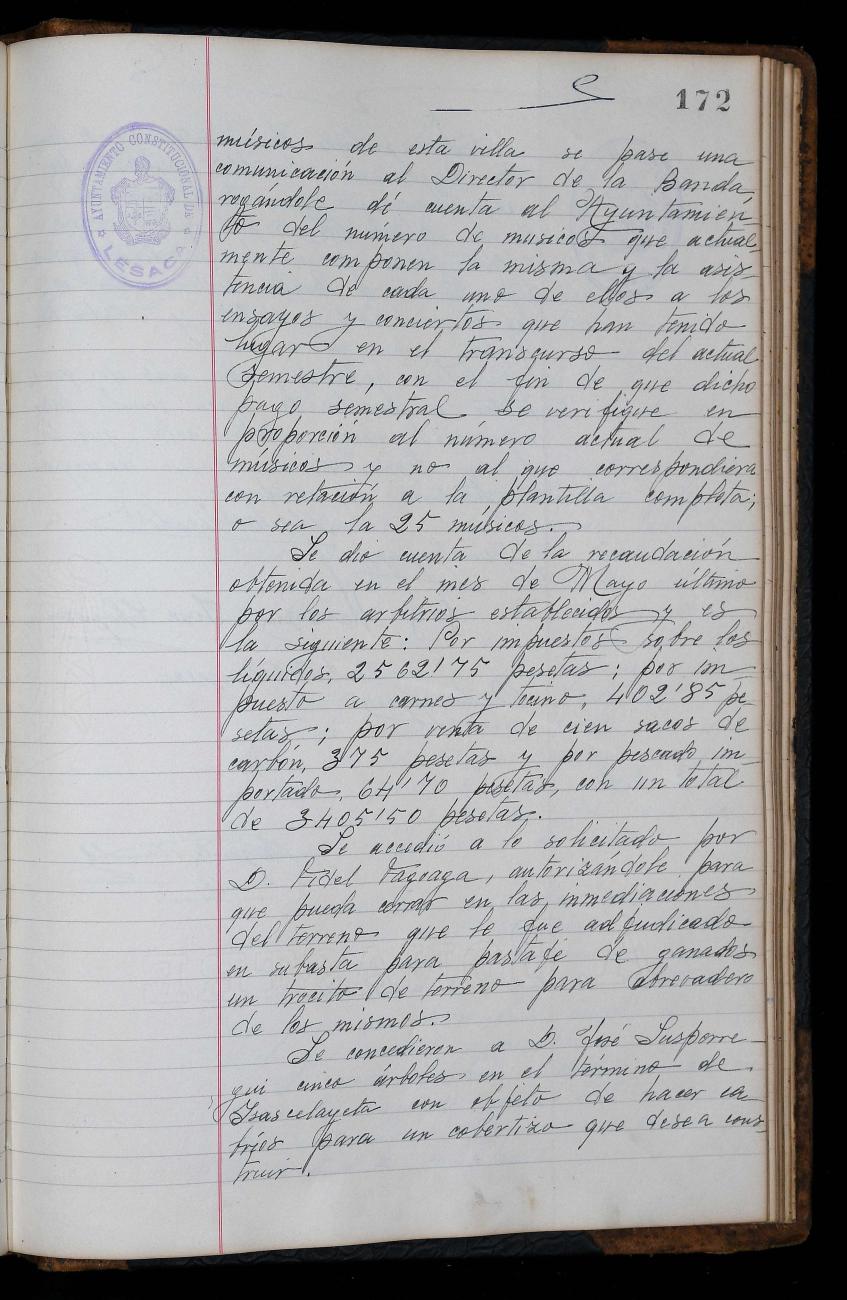 172
AYUNTAMIENTO CONSTITUCIONAL DE
LESACA
músicos de esta villa se pase una
comunicación al Director de la Banda,
rogándole dé cuenta al Ayuntamien
to del número de musicos que actual-
mente componen la misma y la asis
tencia de cada uno de ellos a los
ensayos y conciertos que han tenido
lugar en el transcurso del actual
semestre, con el fin de que dicho
pago semestral se verifique en
proporción al número actual de
músicos y no al que correspondiera
con relación a la plantilla completa;
o sea la 25 músicos.
Se dio cuenta de la recaudación
obtenida en el mes de Mayo último
por los arbitrios establecidos y es
la siguiente: Por impuestos sobre los
líquidos, 2562'75 pesetas; por im-
puesto a carnes y tocino, 402'85 pe-
setas; por venta de cien sacos de
carbón, 375 pesetas y por pescado im-
portado, 64'70 pesetas, con un total
de 3405'50 pesetas.
Se accedió a lo solicitado por
D. Fidel Tapeaga, autorizándole para
que pueda cerrar en las inmediaciones
del terreno que le fue adjudicado
en subasta para pastaje de ganados
un trocito de terreno para abrevadero
de los mismos.
Se concedieron a D. José Susperre-
gui cinco árboles en el término de
con objeto de hacer ca-
bríos para un cobertizo que desea cons-
truir.